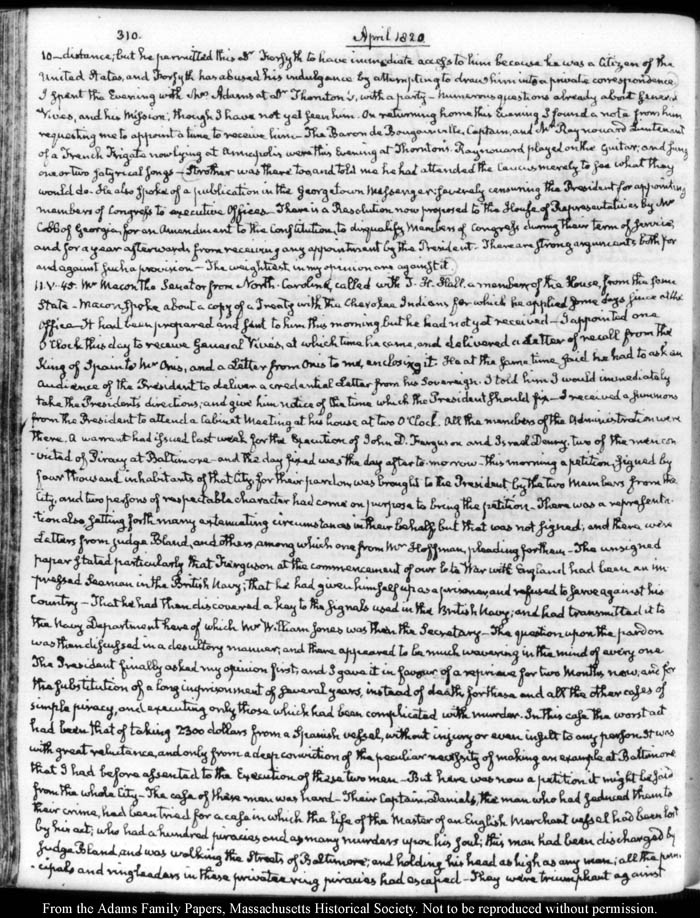 310.
April 1820
10—distance; but he permitted this Mr. Forsyth to have immediate access to him because he was a Citizen of the
United States, and Forsyth has abused his indulgence by attempting to draw him into a private correspondence.
I spent the Evening with Mrs Adams at Dr. Thornton's, with a party—Numerous questions already about General
Vives, and his Mission; though I have not yet seen him. On returning home this Evening I found a note from him
requesting me to appoint a time to receive him—The Baron de Bougainville, Captain, and Mr. Raynouard Lieutenant
of a French Frigate now lying at Annapolis were this Evening at Thornton's. Raynouard played on the Guitar, and sung
one or two satyrical songs—Strother was there too, and told me he had attended the Caucus merely to see what they
would do. He also spoke of a publication in the Georgetown Messenger, severely censuring the President for appointing
members of Congress to executive Offices—There is a Resolution now proposed to the House of Representatives by Mr
Cobb of Georgia, for an Amendment to the Constitution, to disqualify Members of Congress during their term of service,
and for a year afterwards from receiving any appointment by the President. There are strong arguments both for
and against such a provision—The weightiest in my opinion are against it.
11. V. 45. Mr Macon the Senator from North-Carolina, called with T. H. Hall, a member of the House, from the same
State—Macon spoke about a copy of a Treaty with the Cherokee Indians for which he applied some days since at the
Office—It had been prepared and sent to him this morning, but he had not yet received—I appointed one
O'Clock this day to receive General Vives, at which time he came, and delivered a Letter of recall from the
King of Spain to Mr Onis, and a Letter from Onis to me, enclosing it. He at the same time said he had to ask an
Audience of the President to deliver a credential Letter from his Sovereign. I told him I would immediately
take the President's directions, and give him notice of the time which the President should fix—I received a summons
from the President to attend a Cabinet Meeting at his house at two O'Clock. All the members of the Administration were
there. A warrant had issued last week for the Execution of John D. Ferguson and Israel Denny, two of the men con
victed of Piracy at Baltimore—and the day fixed was the day after to-morrow—This morning a petition, signed by
four thousand inhabitants of that City, for their pardon was brought to the President by the two Members from the
City, and two persons of respectable character had come on purpose to bring the petition—There was a representa-
tion also, setting forth many extenuating circumstances in their behalf but that was not signed; and there were
Letters from Judge Bland, and others, among which one from Mr Hoffman, pleading for them—The unsigned
paper stated particularly that Ferguson at the commencement of our late War with England had been an im
pressed Seaman in the British Navy; that he had given himself up as a prisoner, and refused to serve against his
Country—That he had then discovered a key to the Signals used in the British Navy; and had transmitted it to
the Navy Department here of which Mr William Jones was then the Secretary—The question upon the pardon
was then discussed in a desultory manner; and there appeared to be much wavering in the mind of every one
The President finally asked my opinion first, and I gave it in favour of a reprieve for two Months now, and for
the substitution of a long imprisonment of several years, instead of death, for these and all the other cases of
simple piracy, and executing only those which had been complicated with murder. In this case the worst act
had been that of taking 2300 dollars from a Spanish vessel, without injury or even insult to any person. It was
with great reluctance, and only from a deep conviction of the peculiar necessity of making an example at Baltimore
that I had before assented to the Execution of these two men—But here was now a petition it might be said
from the whole City—The case of these men was hard—Their Captain, Daniels, the man who had seduced them to
their crime, had been tried for a case in which the life of the Master of an English Merchant vessel had been lost
by his act, who had a hundred piracies and as many murders upon his soul; this man had been discharged by
Judge Bland, and was walking the Streets of Baltimore, and holding his head as high as any man; all the prin-
cipals and ringleaders in these privateering piracies had escaped—They were triumphant against
From the Adams Family Papers, Massachusetts Historical Society. Not to be reproduced without permission.